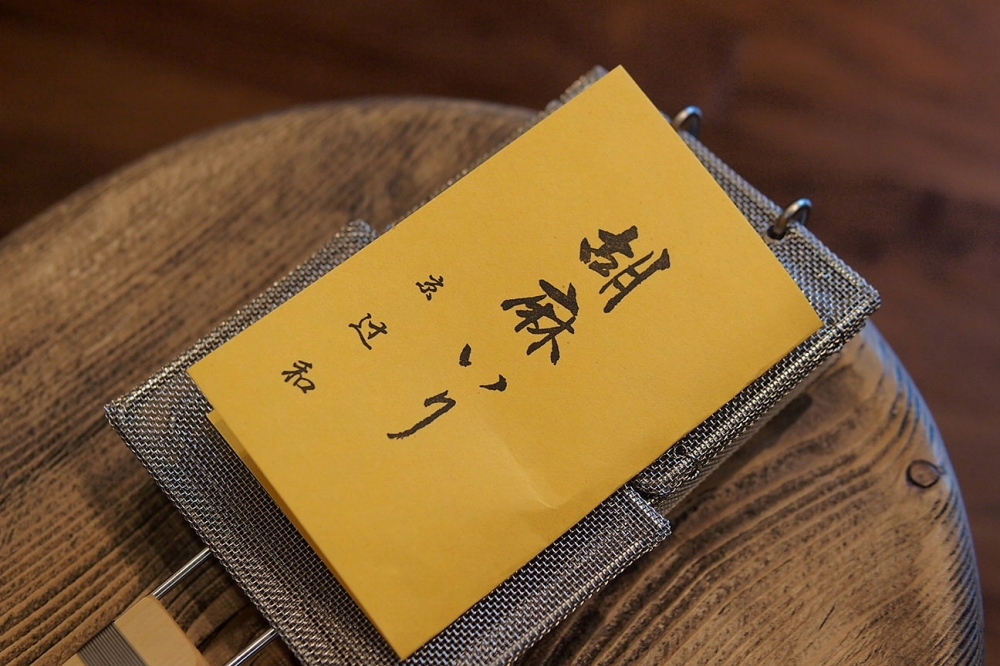 胡麻いり
京辻和